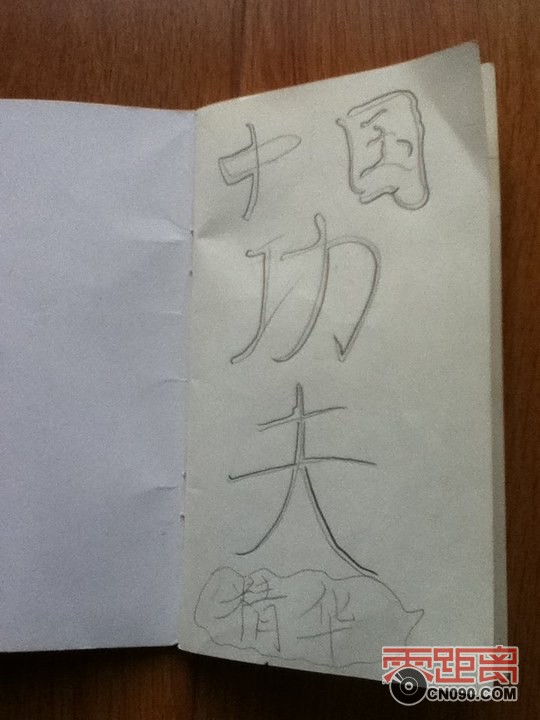 中国
功
夫
精华
零距离
CN090.COM